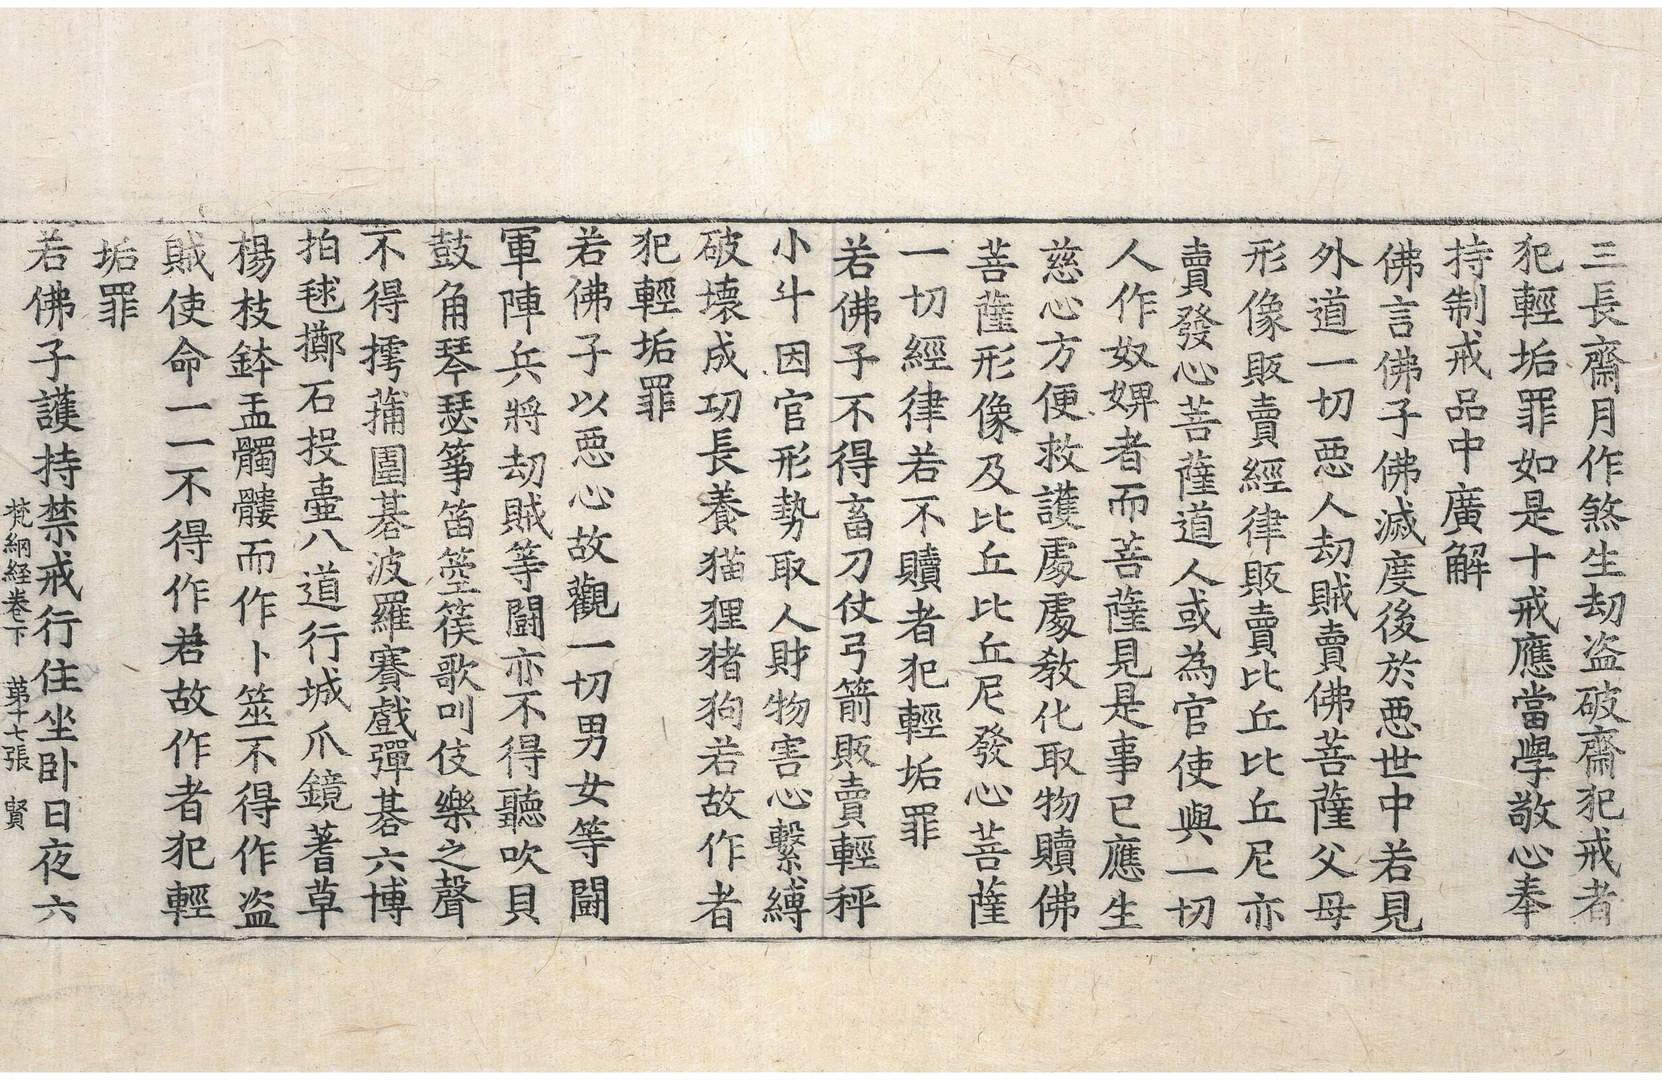 三長齋月作煞生劫盜破齋犯戒者
犯輕垢罪如是十戒應當學敬心奉
持制戒品中廣解
佛言佛子佛滅度後於惡世中若見
外道一切惡人劫賊賣佛菩薩父母
形像販賣經律販賣比丘比丘尼亦
賣發心菩薩道人或為官使與一切
人作奴婢者而菩薩見是事已應生
慈心方便救護處處教化取物贖佛
菩薩形像及比丘比丘尼發心菩薩
一切經律若不贖者犯輕垢罪
若佛子不得畜刀仗弓箭販賣輕秤
小斗因官形勢取人財物害心繫縛
破壞成功長養猫狸猪狗若故作者
犯輕垢罪
若佛子以惡心故觀一切男女等鬪
軍陣兵將劫賊等鬪亦不得聽吹貝
鼓角琴瑟箏笛箜篌歌叫伎樂之聲
不得摴蒱圍碁波羅賽戲彈碁六博
拍毬擲石投壺八道行城爪鏡蓍草
楊枝鉢盂髑髏而作卜筮不得作盜
賊使命一一不得作若故作者犯輕
垢罪
若佛子護持禁戒行住坐卧日夜六
梵網経卷下 第十七張 賢